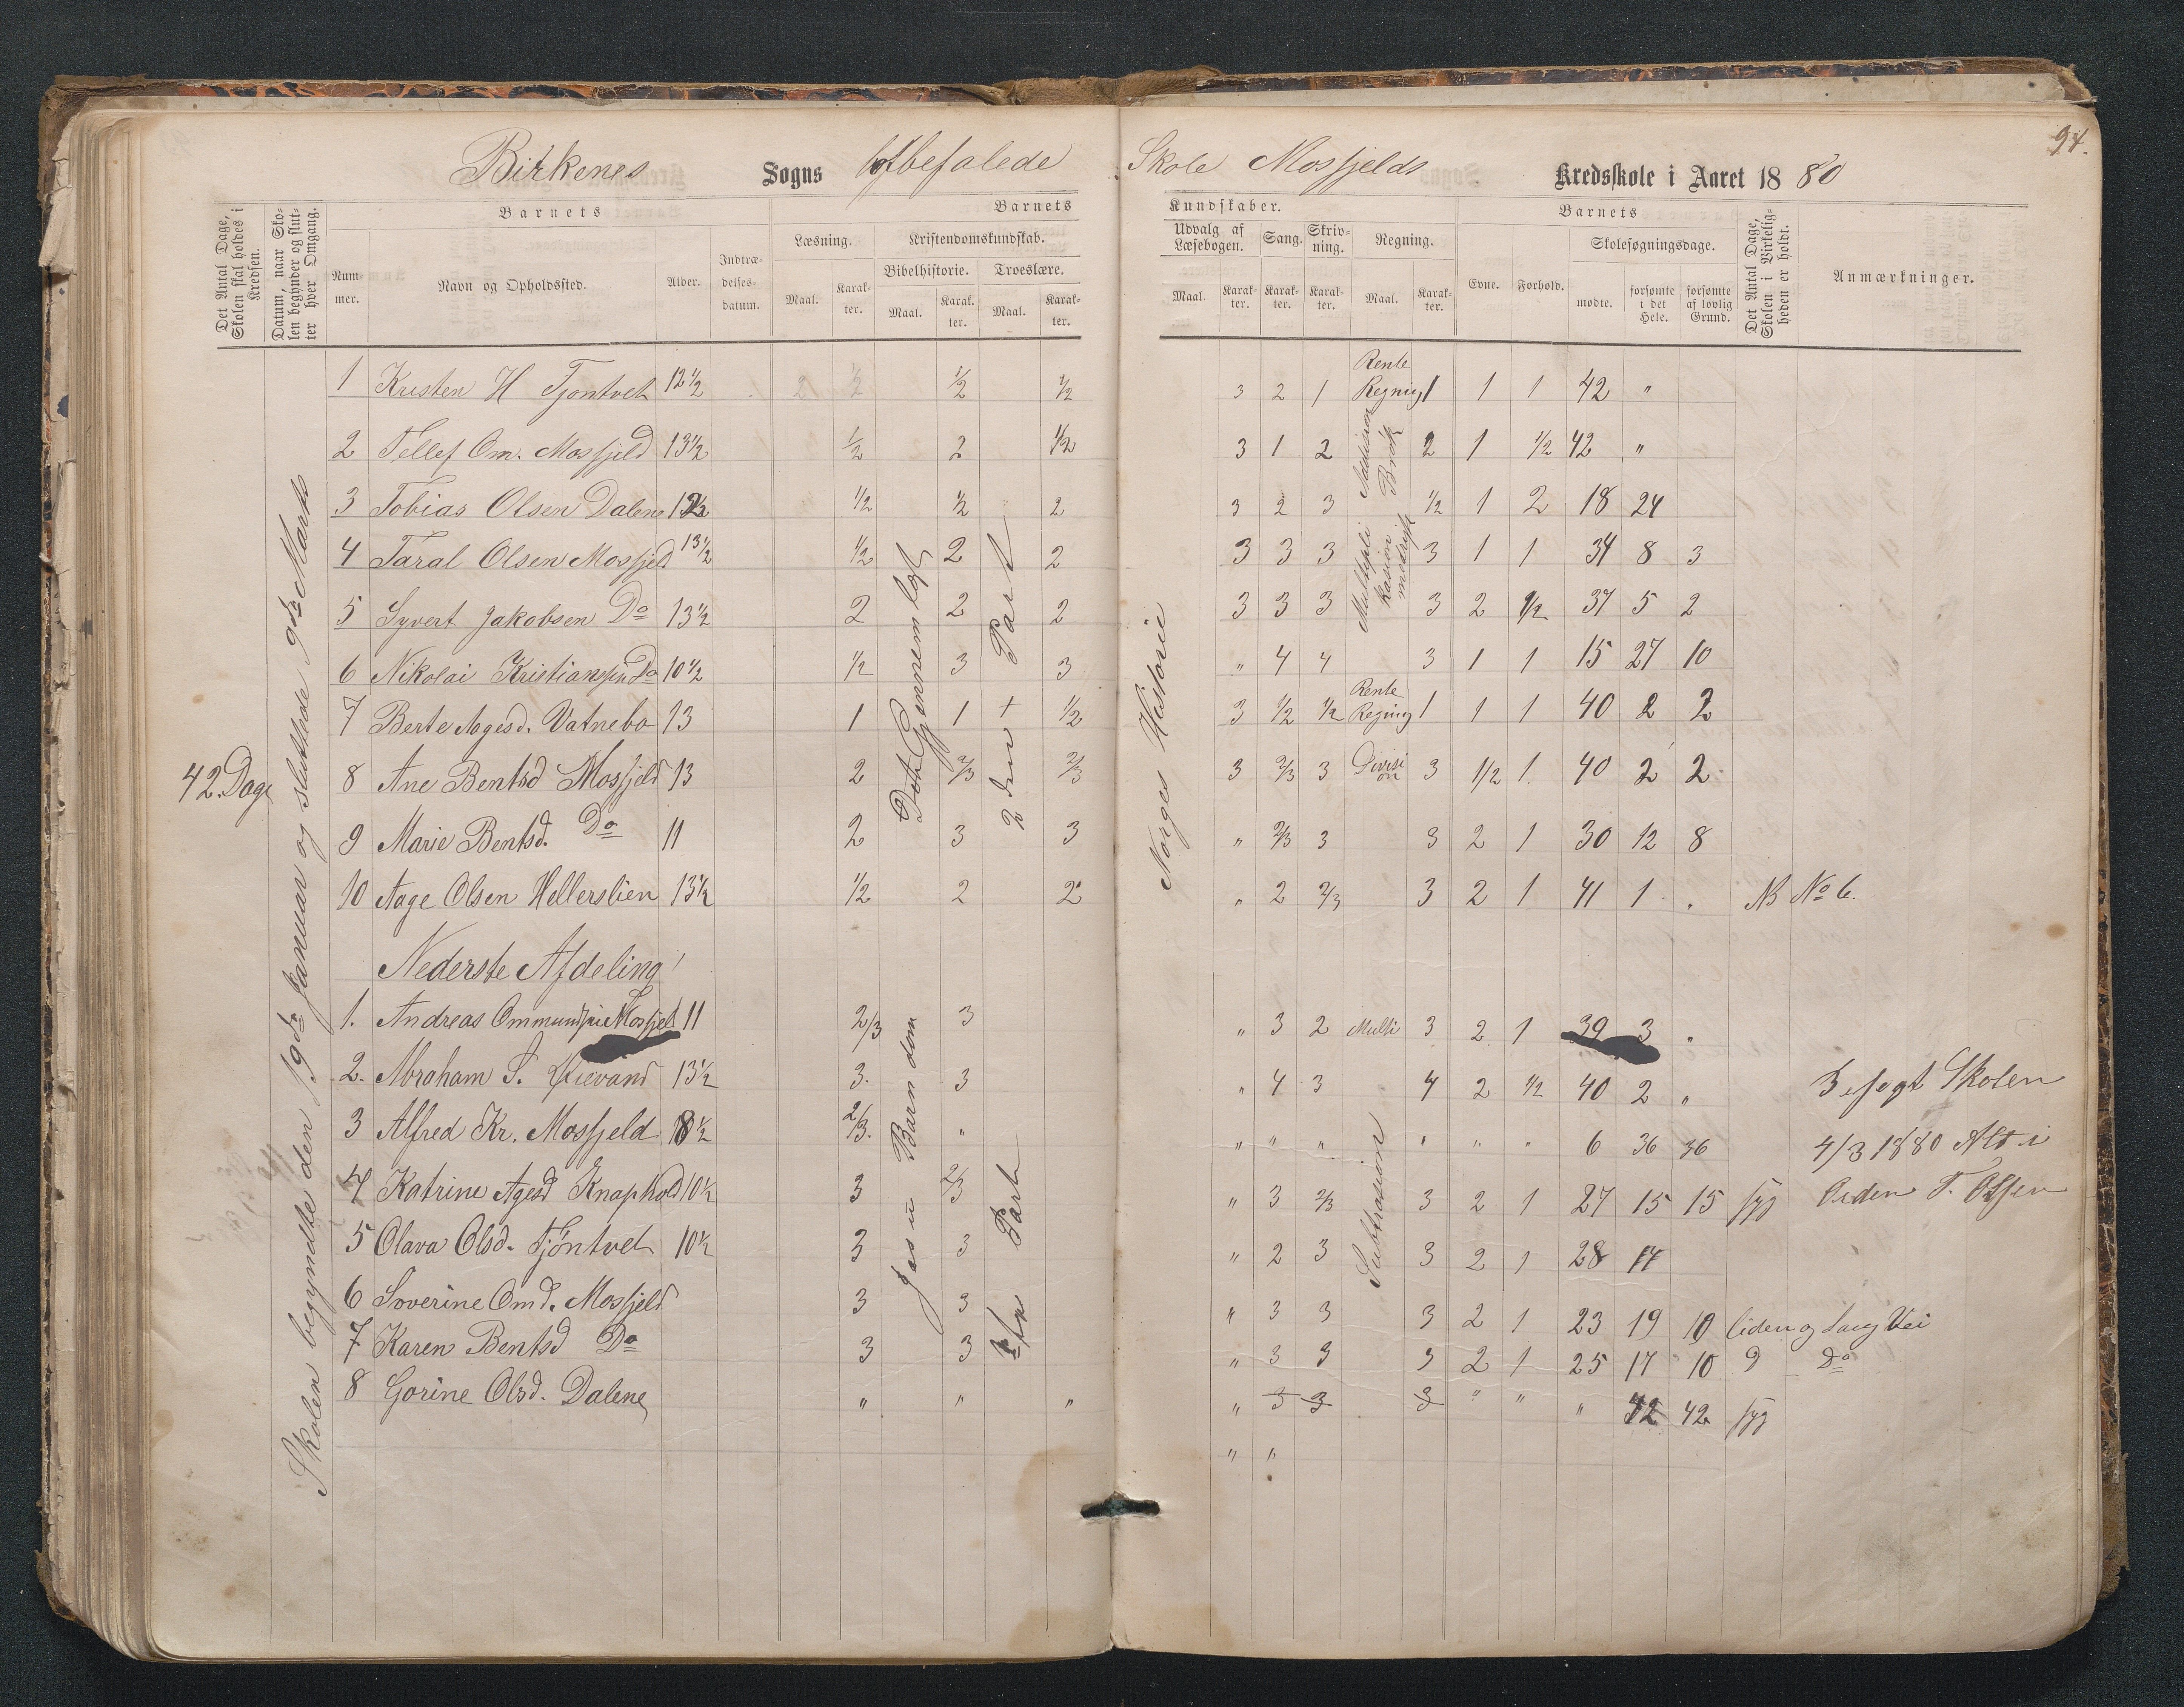 94.
Birkenes Sogns Skole Mosfjelds Kredsskole i Aaret 1880
Det Antal Dage, Skolen skal holdes i Kredsen.
Datum, naar Skolen begynder og slutter hver Omgang.
Barnets
Nummer.
Navn og Opholdssted.
Alder.
Indtrædelsesdatum.
Barnets
Læsning.
Maal.
Karakter.
Kristendomskundskab.
Bibelhistorie.
Maal.
Karakter.
Troeslære.
Maal.
Karakter.
Kundskaber.
Udvalg af Læsebogen.
Maal.
Karakter.
Sang.
Karakter.
Skrivning.
Karakter.
Regning.
Maal.
Karakter.
Barnets
Evne.
Forhold.
Skolesøgningsdage.
mødte.
forsømte i det Hele.
forsømte af lovlig Grund.
Det Antal Dage, Skolen i Virkeligheden er holdt.
Anmærkninger.
42 Dage
Skolen begyndte den 19de Januar og sluttede 9de Marts
Det Gjennemlagt
2den Part
Norges Historie
1 Kristen H Tjontvet 12 1/2 2 1/2 1/2 1/2 3 2 1 Rente Regnig 1 1 1 42 "
2 Tellef Om. Mosfjeld 13 1/2 1/2 2 1/2 3 1 2 Addision Brøk 2 1 1/2 42 "
3 Tobias Olsen Dalene 1/2 1/2 2 3 2 3 1/2 1 2 18 24
4 Taral Olsen Mosfjeld 13 1/2 1/2 2 2 3 3 3 Multipli kasion 3 1 1 34 8 3
5 Syvert Jakobsen Do 13 1/2 2 2 2 3 3 3 3 2 1/2 37 5 2
6 Nikolai Kristiansen Do 10 1/2 1/2 3 3 " 4 4 3 1 1 15 27 10
7 Berte Aagesd. Vatnebo 13 1 1 + 1/2 3 1/2 1/2 Rente Regnig 1 1 1 40 2 2
8 Ane Bentsd Mosfjeld 13 2 2/3 2/3 3 2/3 3 Division 3 1/2 1. 40 2 2
9 Marie Bentsd. Do 11 2 3 3 " 2/3 3 3 2 1 30 12 8
10 Aage Olsen Hellerslien 13 1/2 1/2 2 2 " 2 2/3 3 2 1 41 1 " NB No 6.
Nederste Afdeling
Jesu Barndom
Part
Subtrasion
1. Andreas Mosfjel 11 2/3 3 " 3 2 Multi 3 2 1 39 3 "
2. Abraham S. 13 1/2 3. 3 " 4 3 4 2 1/2 40 2 "
3 Alfred Kr. Mosfjeld 8 1/2 2/3. " " " " " " " 6 36 36
4 Katrine Agesd Knaphold 10 1/2 3 2/3 " 3 2/3 3 2 1 27 15 15 syg
5 Olava Olsd. Tjöntvet 10 1/2 3 3 " 2 3 3 2 1 28 14
6 Soverine Omd. Mosfjeld 3 3 " 3 3 3 2 1 23 19 10 liden og lang Vei
7 Karen Bentsd Do 3 3 " 3 3 3 2 1 25 17 10 Do
8 Gorine Olsd. Dalene " " " " 3 3 3 " " " 42 42 syg
" "
Besøgt Skolen
4/3 1880 Alt i
Orden T. Olsen